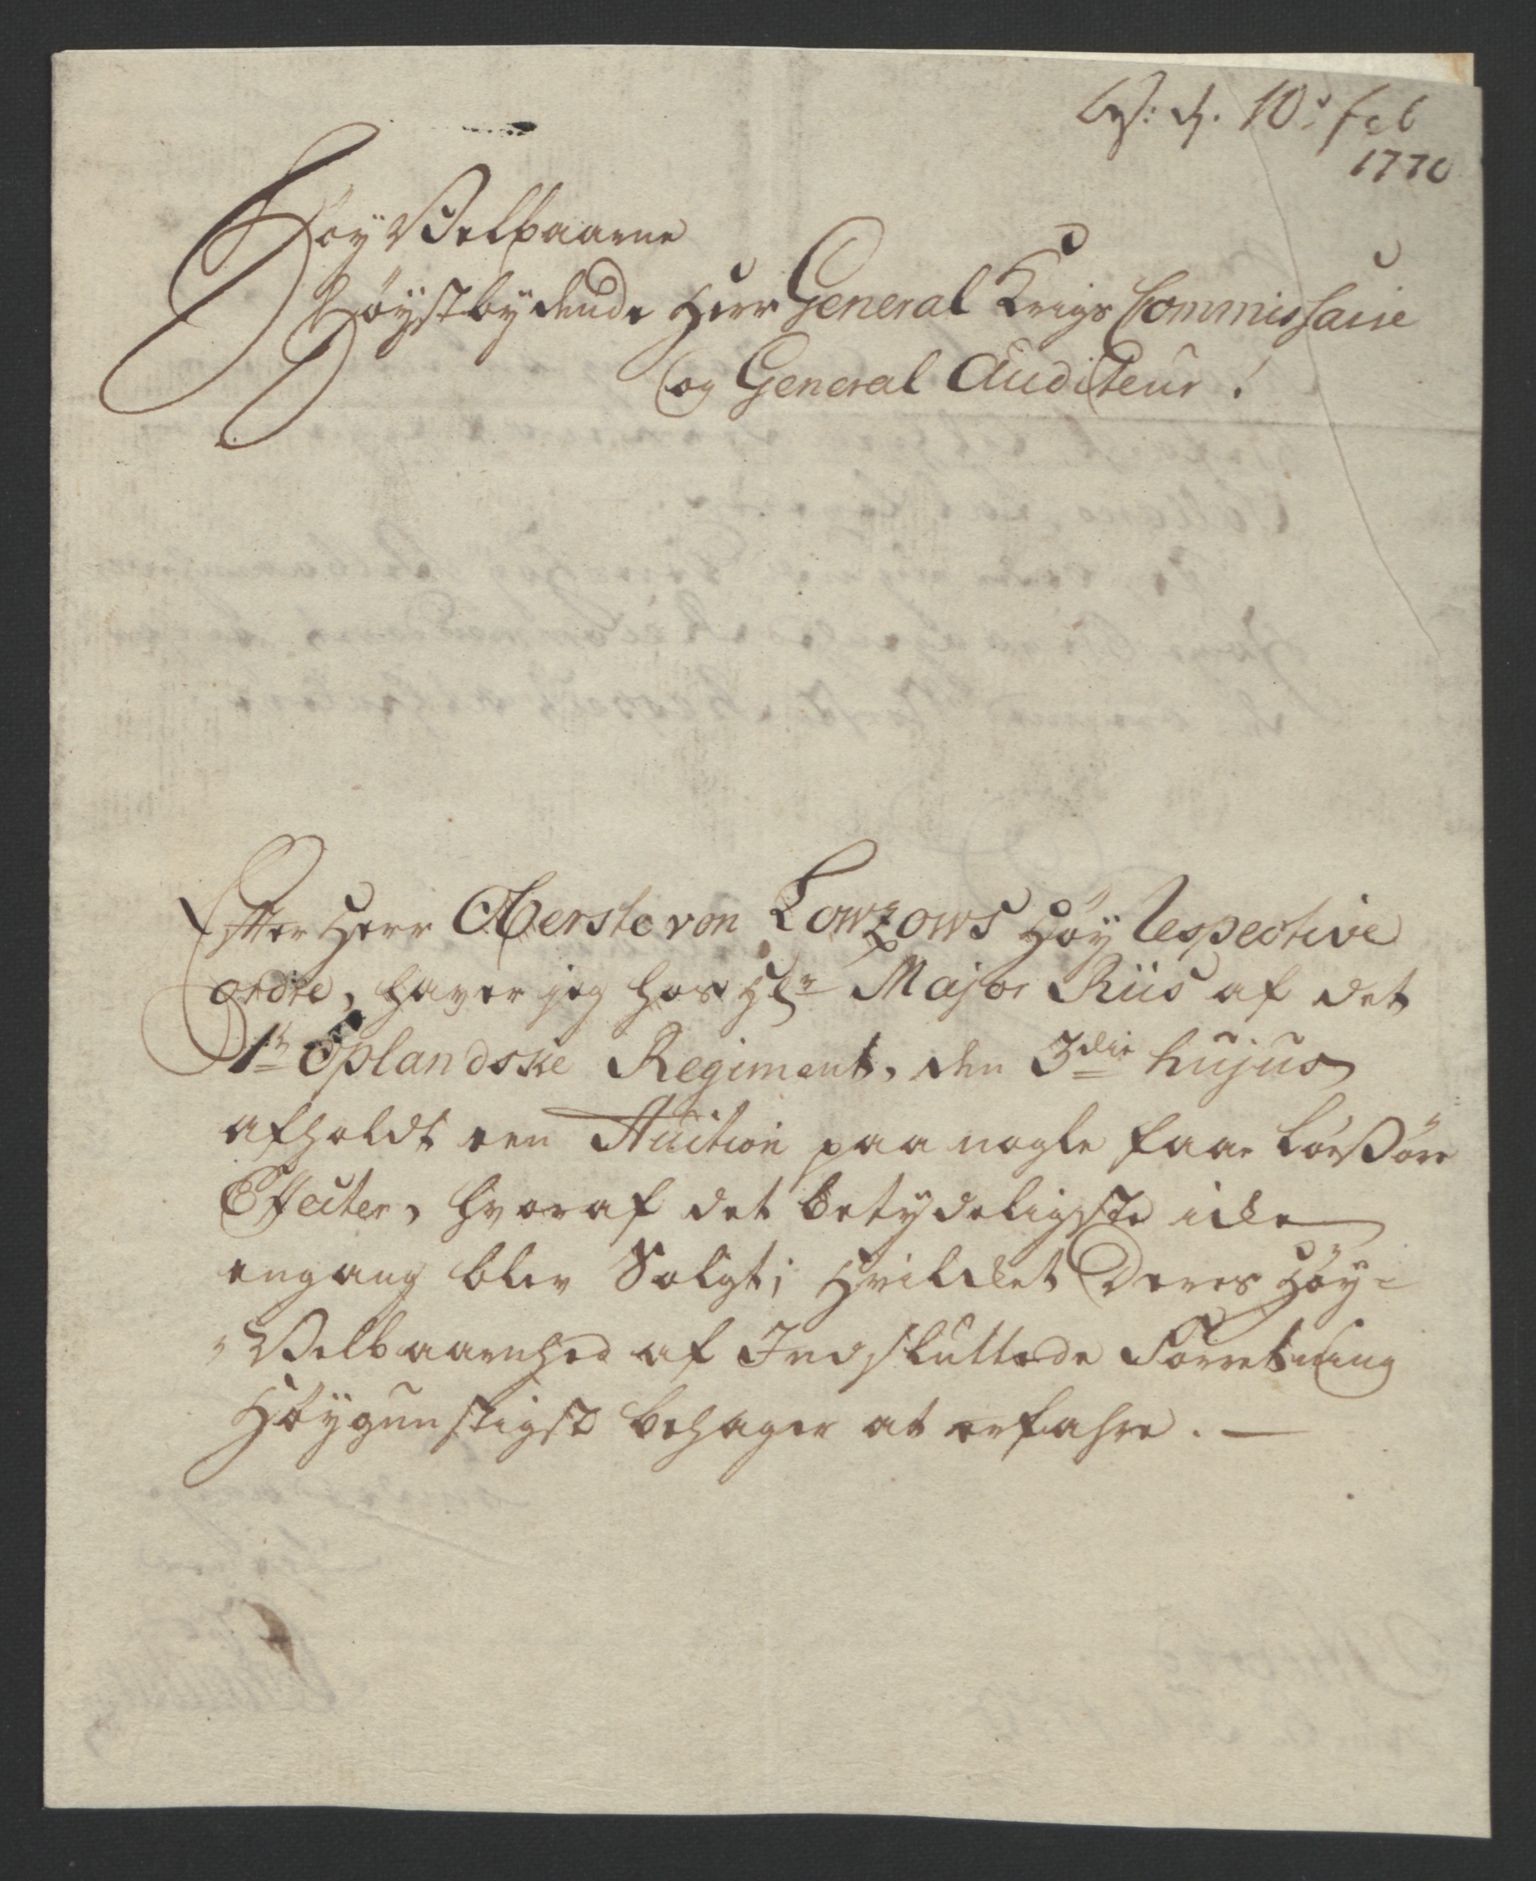 d. 10d feb
1770
HøyVelbaarne
Høystbydende Herr General Krigs Commissaire
og General Auditeur!
Efter Herr Oberste von Lowzows Høy respective
ordre, haver jeg hos Hr Major Riis af det
1te Oplandske Regiment, den 3die hujus
afholdt een Auction paa nogle faae Løsøre
Effecter, hvoraf det betydeligste icke
engang blev Solgt; Hvilcket Deres Høy-
Velbaarnhed af Indsluttede Forretning
Høygunstigst behager at erfahre. —